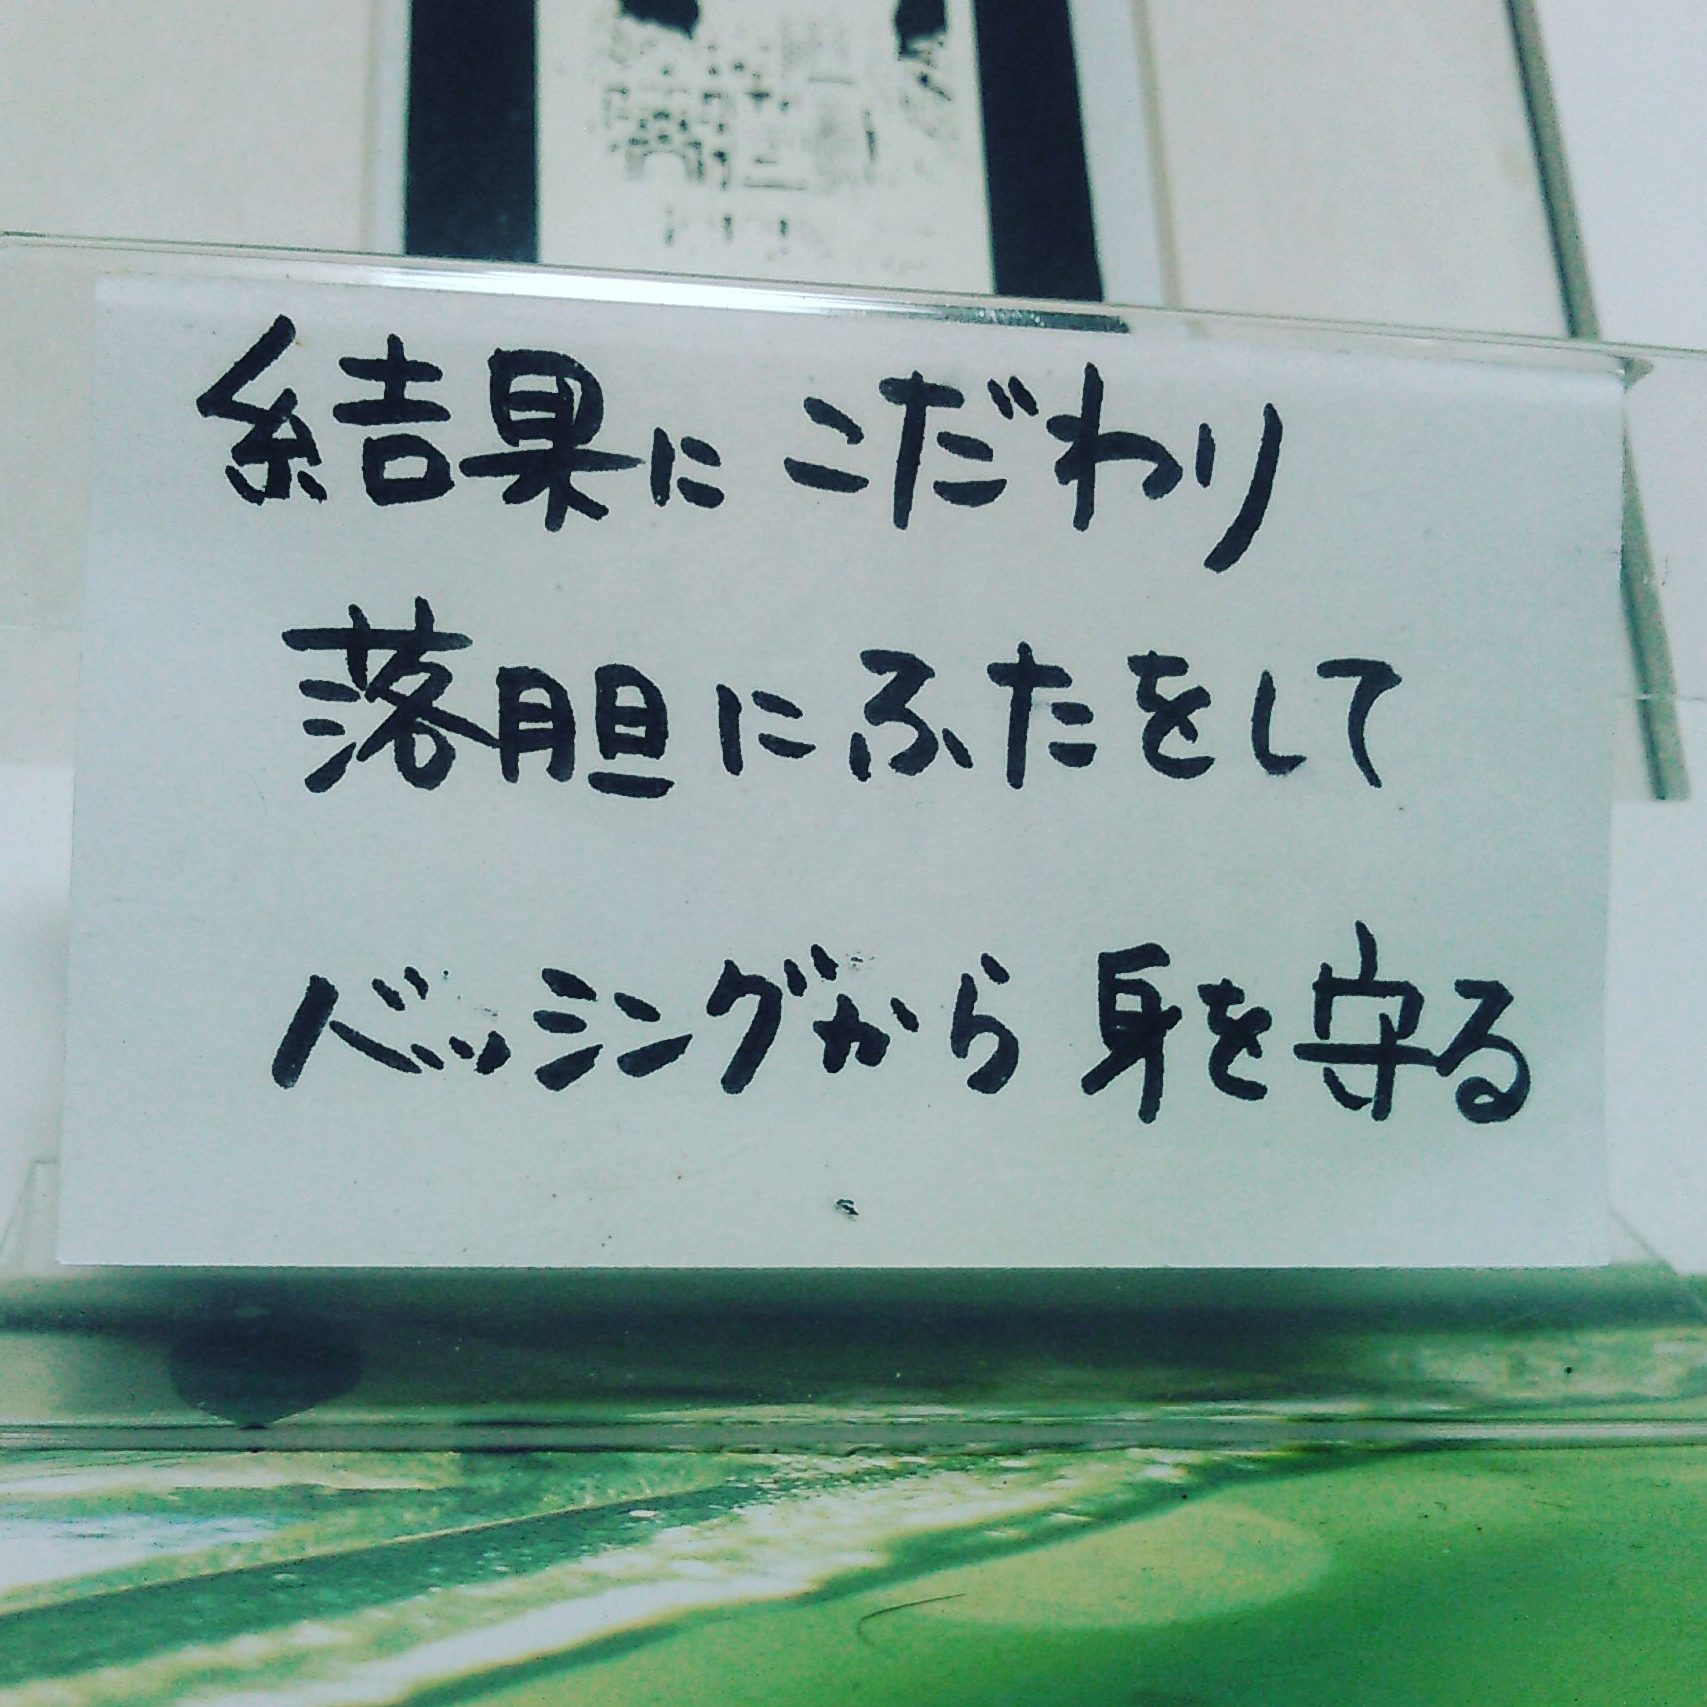 結果に こだわり
落胆にふたをして
バッシングから 身を守る